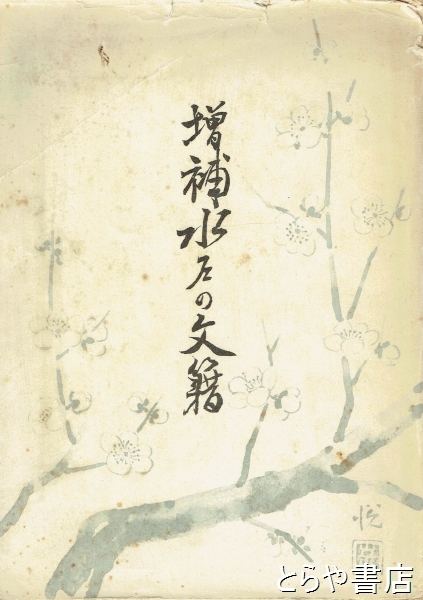 増補水戸の文籍
悦
とらや書店